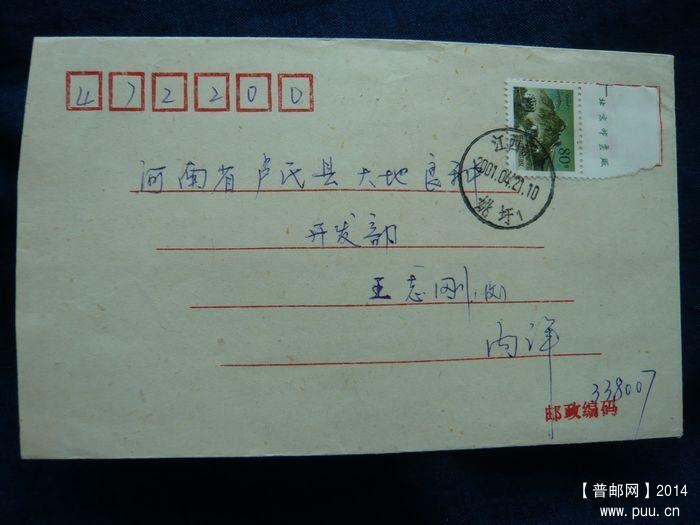 472200
80
北京邮票厂
江西
2001.04.21.10
姚圩1
河南省卢氏县大地良种
开发部
王志刚 收
内详
338007
邮政编码
【普邮网】2014
www.puu.cn